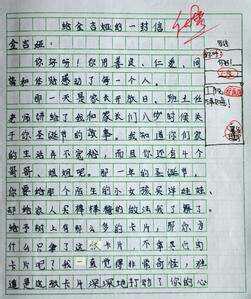 给金吉娅的一封信
金吉娅：
你好呀！你用善良、仁爱、同
情和体贴感动了每一个人。
那一天是家长开放日，班主任
老师讲给了我和家长们八岁时候关
于你圣诞节的故事。我知道你们家
的生活并不富裕，而且你还有4个
哥哥、姐姐吧。那一年的圣诞节，
你要给那个陌生的小女孩买洋娃娃，
却给家人买棒棒糖的做法我了展了。
给予树上有那么多的卡片，那你为
什么只拿了这张卡片，不拿其它的
卡片呢？我一直觉得非常奇怪，难
道是这张卡片深深地打动了你的心